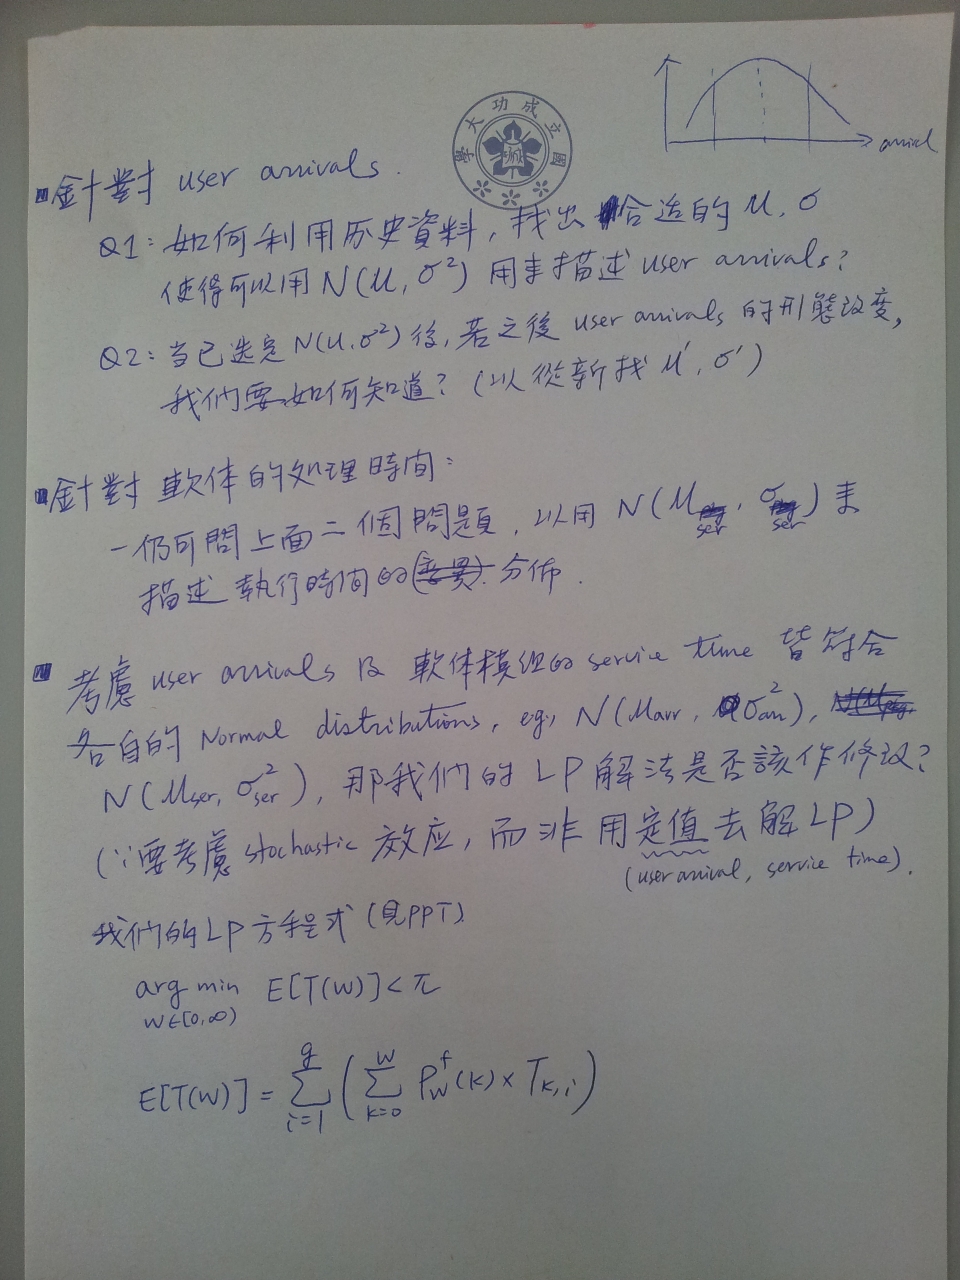 arrival
國立成功大學
針對 user arrivals.
Q1: 如何利用历史資料, 找出 合适的 μ, σ
使得可以用 N(μ, σ²) 用來描述 user arrivals?
Q2: 当已选定 N(μ, σ²) 後, 若之後 user arrivals 的形態改变,
我們要如何知道? (以從新找 μ', σ')
針對 軟体的处理時間:
- 仍可問上面二個問題, 以用 N(μser, σser) 來
描述 執行時間的 分佈.
考慮 user arrivals 及 軟体模组的 service time 皆符合
各自的 Normal distributions, eg, N(μarr, σ²arr),
N(μser, σ²ser), 那我們的 LP 解法是否該作修改?
(∵要考慮 stochastic 效应, 而非用定值去解 LP)
(user arrival, service time).
我們的 LP 方程式 (見PPT)
arg min E[T(W)] < π
W∈[0,∞)
E[T(W)] = Σ_{i=1}^{g} ( Σ_{k=0}^{W} P_W^f(k) × T_{k,i} )